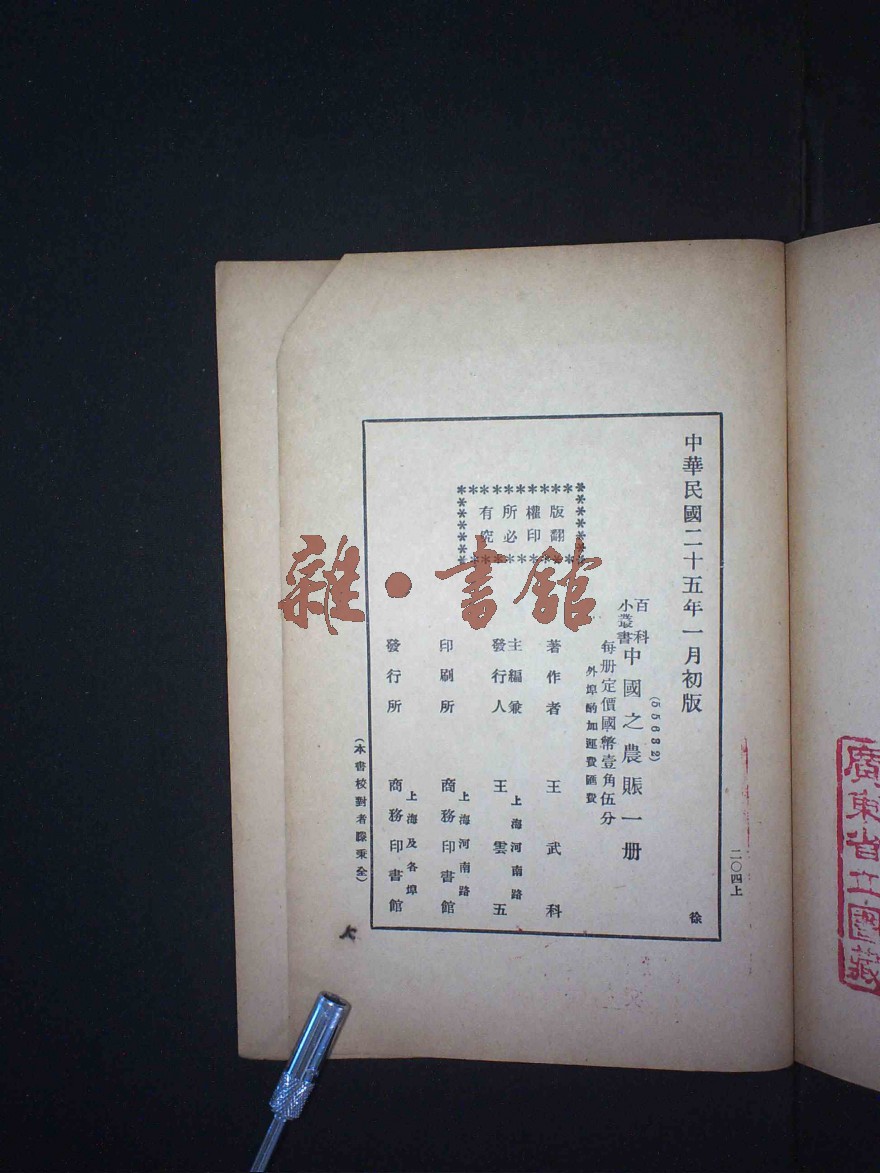 中華民國二十五年一月初版
二〇四上
徐
(55632)
百科
小叢書
中國之農賑一册
每册定價國幣壹角伍分
外埠酌加運費匯費
版權所有
翻印必究
著作者 王武科
主編兼
發行人
上海河南路
王雲五
印刷所
上海河南路
商務印書館
發行所
上海及各埠
商務印書館
(本書校對者滕秉全)
雜·書館
廣東省立圖藏